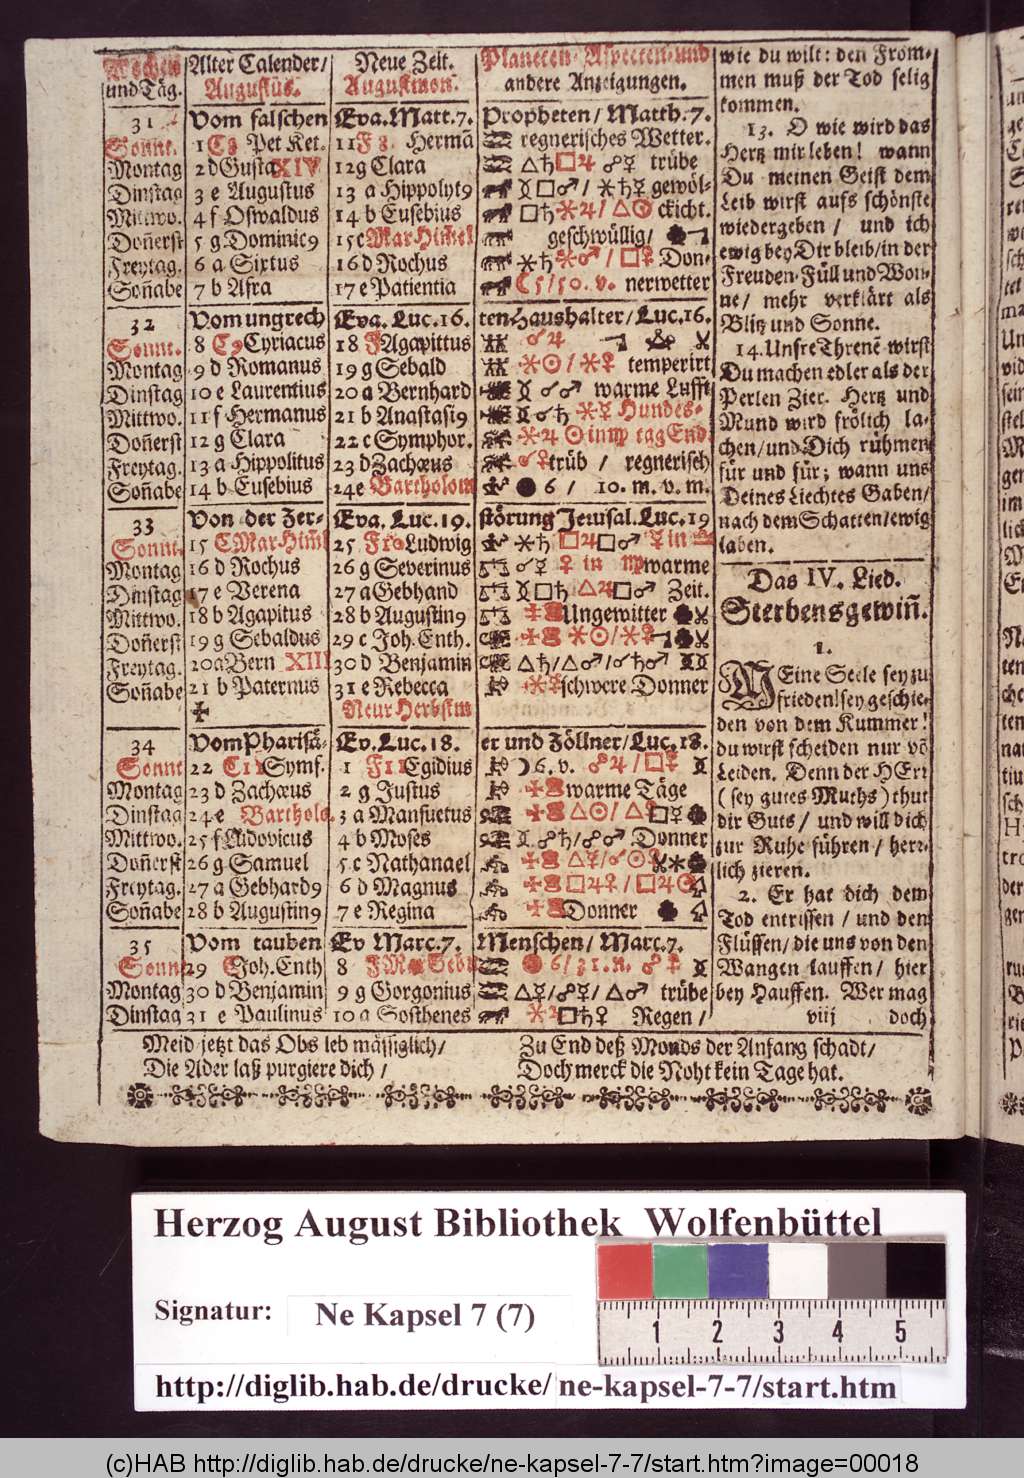 Wochen Alter Calender/ Neue Zeit. Planeten-Aspecten-und
und Täg. Augustus. Augustmon. andere Anzeigungen.
31 Vom falschen Eva. Matt. 7. Propheten/ Matth. 7.
Sonnt. 1 C Pet Ket. 11 F 8. Hermã regnerisches Wetter.
Montag 2 d Gusta XIV 12 g Clara △♄□♃ ☍☿ trübe
Dinstag 3 e Augustus 13 a Hippolyt9 □♂/ gewöl-
Mittwo. 4 f Oswaldus 14 b Eusebius □♄ ckicht.
Doñerst 5 g Dominic9 15 c Mar Him̃el geschwüllig/
Freytag. 6 a Sixtus 16 d Rochus Don-
Soñabe 7 b Afra 17 e Patientia nerwetter
32 Vom ungrech Eva. Luc. 16. ten Haushalter/ Luc. 16.
Sonnt. 8 C9 Cyriacus 18 F Agapittus ☌♃
Montag 9 d Romanus 19 g Sebald temperirt
Dinstag 10 e Laurentius 20 a Bernhard ☌♂ warme Lufft
Mittwo. 11 f Hermanus 21 b Anastasi9 ☌♄ Hundes-
Doñerst 12 g Clara 22 c Symphor. tag End.
Freytag. 13 a Hippolitus 23 d Zachœus ☌♀ trüb / regnerisch
Soñabe 14 b Eusebius 24 e Bartholom 6 / 10. m. v. m.
33 Von der Zer- Eva. Luc. 19. störung Jerusal. Luc. 19
Sonnt. 15 C Mar Him̃l 25 F10 Ludwig □♃□♂ ♀ in ♎
Montag 16 d Rochus 26 g Severinus ☌☿ ♀ in ♍ warme
Dinstag 17 e Verena 27 a Gebhand □♄ △♃□♂ Zeit.
Mittwo. 18 b Agapitus 28 b Augustin9 Ungewitter
Doñerst 19 g Sebaldus 29 c Joh. Enth.
Freytag. 20 a Bern XIII 30 d Benjamin △♄/△♂/☌♄♂
Soñabe 21 b Paternus 31 e Rebecca schwere Donner
Neur Herbstm
34 Vom Pharisä- Ev. Luc. 18. er und Zöllner/ Luc. 18.
Sonnt 22 C11 Symf. 1 F11 Egidius 6. v. ☍♃/□
Montag 23 d Zachœus 2 g Justus warme Täge
Dinstag 24 e Bartholo. 3 a Mansuetus
Mittwo. 25 f Ludovicus 4 b Moses ☍♄/☍♂ Donner
Doñerst 26 g Samuel 5 c Nathanael
Freytag. 27 a Gebhard9 6 d Magnus
Soñabe 28 b Augustin9 7 e Regina Donner
35 Vom tauben Ev Marc. 7. Menschen/ Marc. 7.
Sonn 29 Joh. Enth 8 F Mar Geb 6/31. n. ☍♀
Montag 30 d Benjamin 9 g Gorgonius △☿/☍☿/ △♂ trübe
Dinstag 31 e Paulinus 10 a Sosthenes □♄♀ Regen /
Meid jetzt das Obs leb mässiglich/
Die Ader laß purgiere dich /
Zu End deß Monds der Anfang schadt/
Doch merck die Noht kein Tage hat.
wie du wilt: den From-
men muß der Tod selig
kommen.
13. O wie wird das
Hertz mir leben! wann
Du meinen Geist dem
Leib wirst aufs schönste
wiedergeben / und ich
ewig bey Dir bleib/ in der
Freuden-Füll und Won-
ne/ mehr verklärt als
Blitz und Sonne.
14. Unsre Threnẽ wirst
Du machen edler als der
Perlen Zier. Hertz und
Mund wird frölich la-
chen/ und Dich rühmen
für und für; wann uns
Deines Liechtes Gaben/
nach dem Schatten/ ewig
laben.
Das IV. Lied.
Sterbensgewiñ.
1.
MEine Seele sey zu
frieden! sey geschie-
den von dem Kummer!
du wirst scheiden nur võ
Leiden. Denn der HErr
(sey gutes Muths) thut
dir Guts / und will dich
zur Ruhe führen / herr-
lich zieren.
2. Er hat dich dem
Tod entrissen / und den
Flüssen/ die uns von den
Wangen lauffen/ hier
bey Hauffen. Wer mag
viij doch
Herzog August Bibliothek Wolfenbüttel
Signatur: Ne Kapsel 7 (7)
1 2 3 4 5
http://diglib.hab.de/drucke/ne-kapsel-7-7/start.htm
(c)HAB http://diglib.hab.de/drucke/ne-kapsel-7-7/start.htm?image=00018